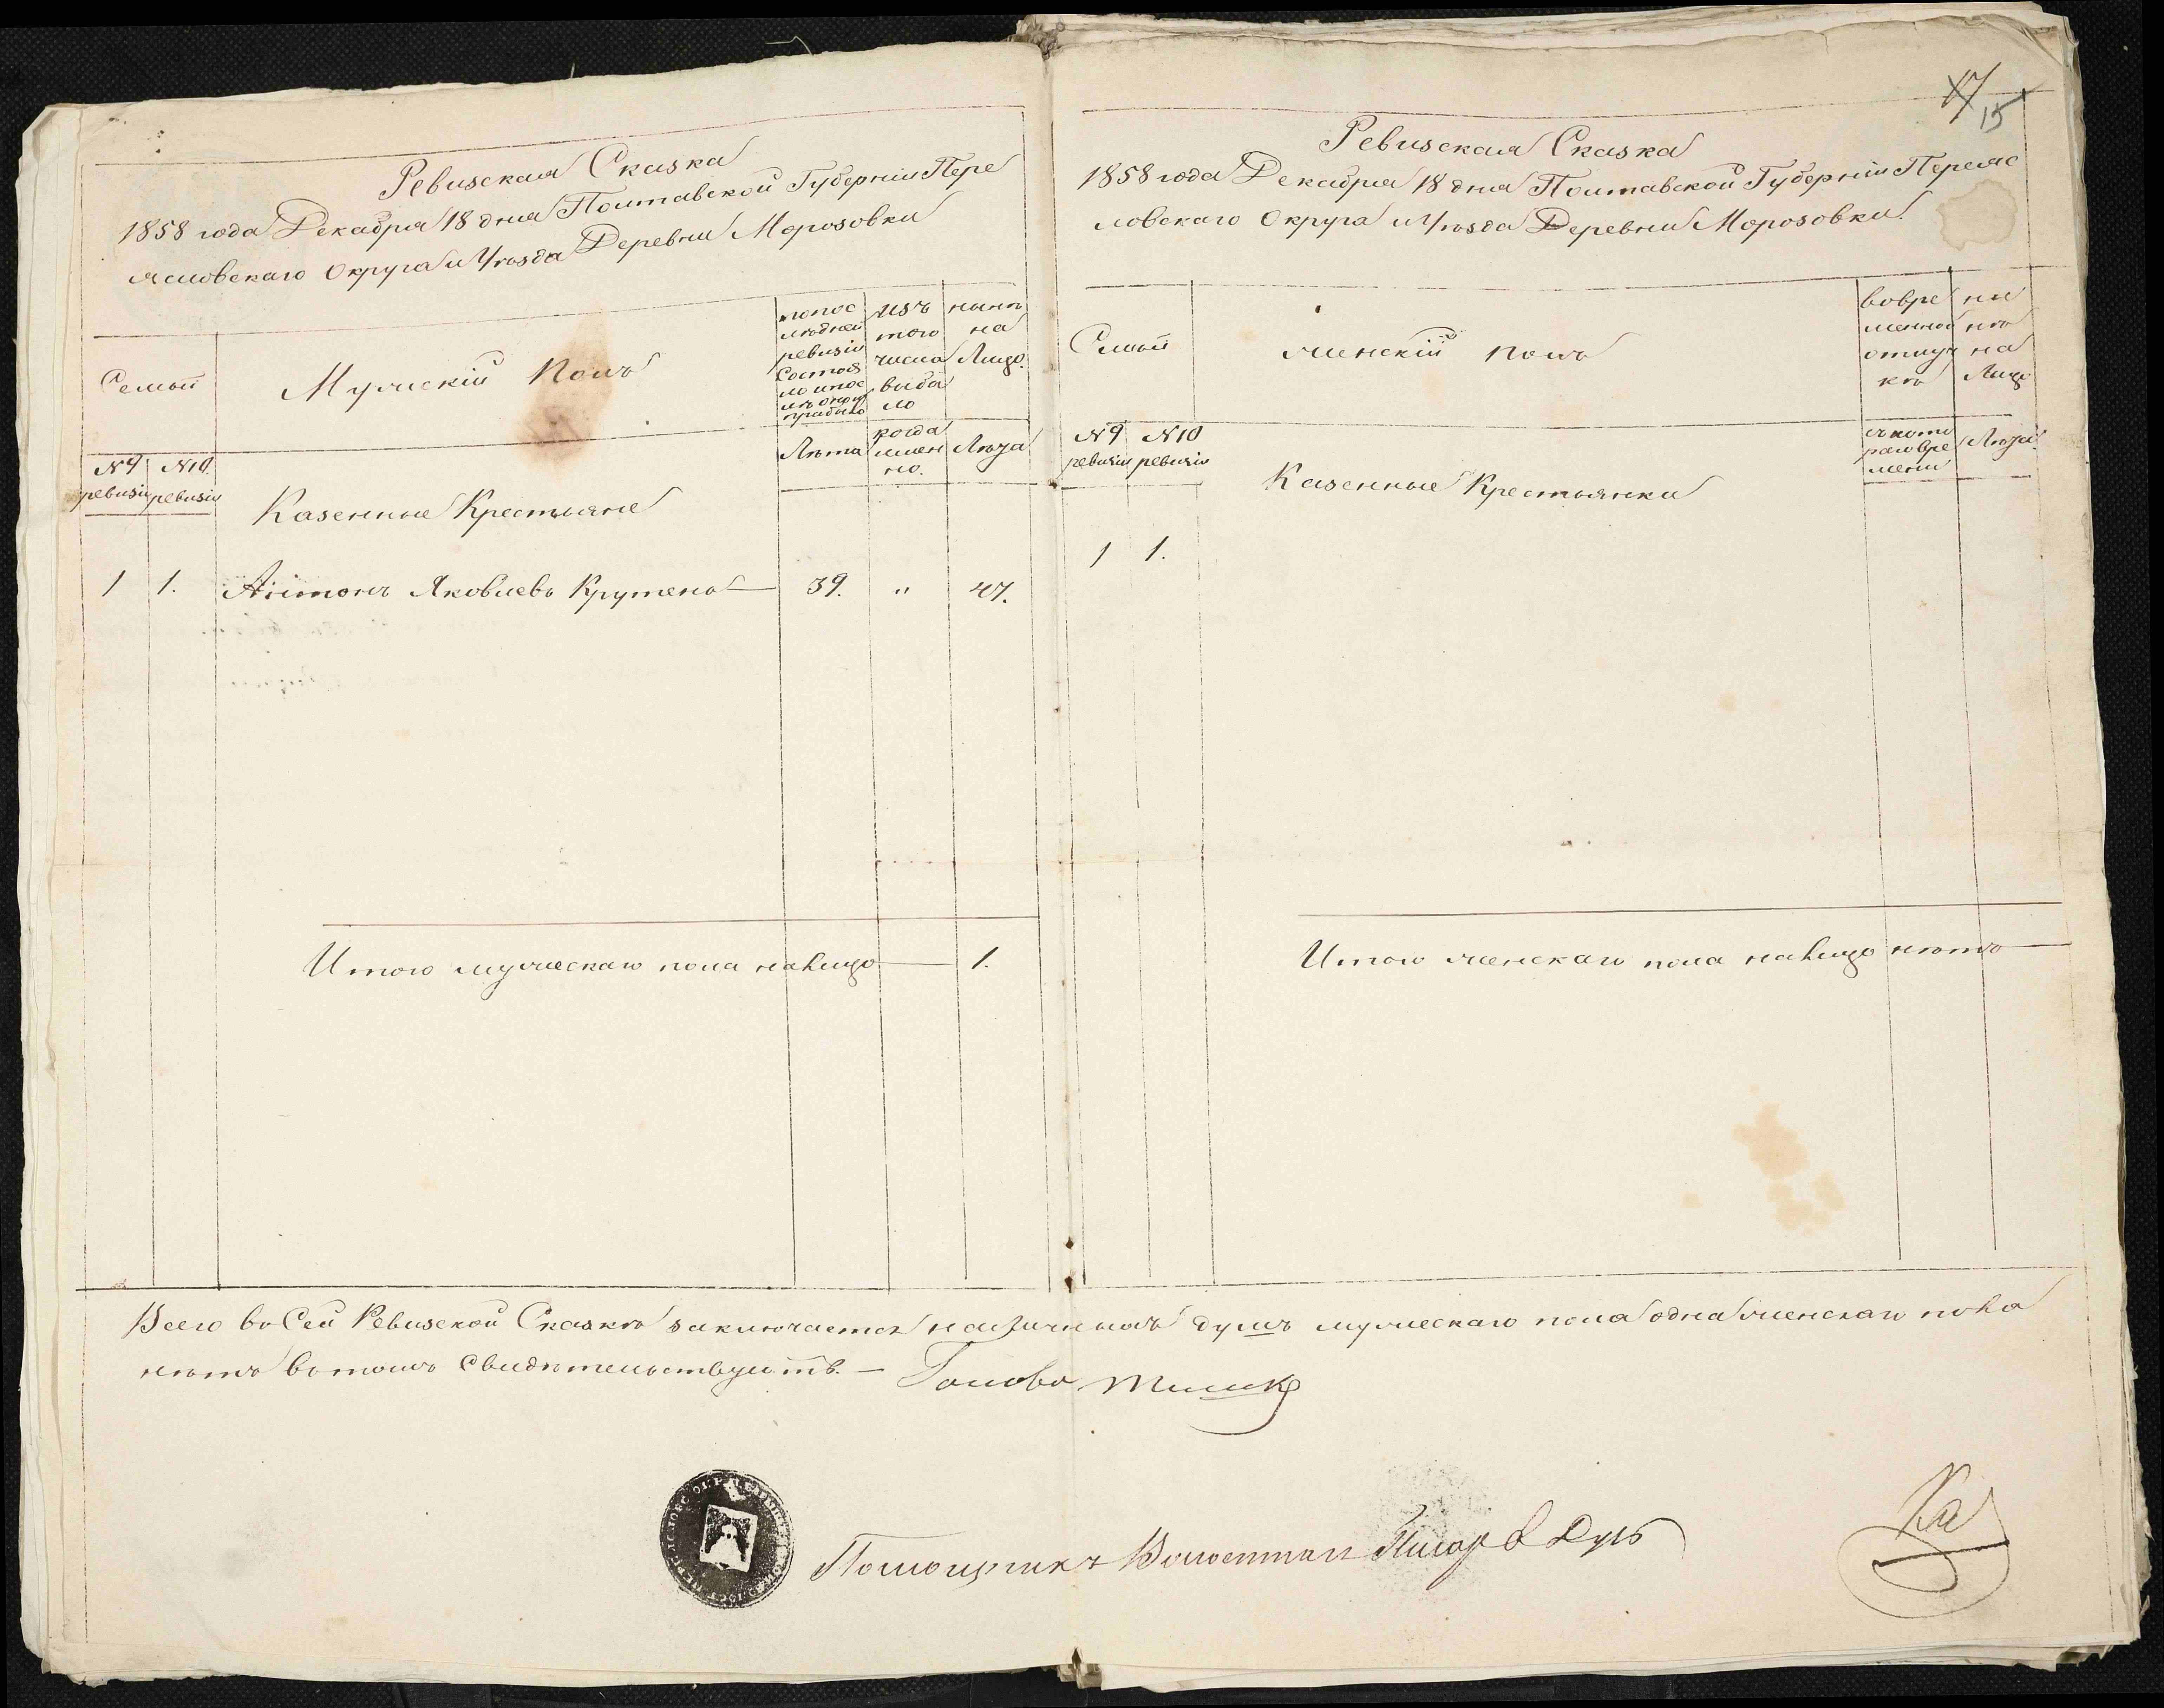 Ревизская Сказка
1858 года Декабря 18 дня Полтавской Губерніи Пере
яславскаго Округа и Уѣзда Деревни Морозовки
Семьи
Мужескій Полъ
по пос
лѣдней
ревизіи
состоя
ло и пос
лѣ оной
прибыло
изъ
того
числа
выбы
ло
нынѣ
на
Лицо.
№ 9
ревизіи
№ 10.
ревизіи
Казенные Крестьяне
Лѣта
когда
имен
но.
Лѣта
1 1. Антонъ Яковлевъ Крутень 39. " 47.
Итого мужескаго пола налицо 1.
17
15
Ревизская Сказка
1858 года Декабря 18 дня Полтавской Губерніи Переяс
ловскаго Округа и Уѣзда Деревни Морозовки
Семьи
женскій полъ
вовре
менной
отлуч
кѣ
ны
нѣ
на
Лицо
№ 9
ревизіи
№ 10
ревизіи
Казенные Крестьянки
съ кото
раго вре
мени
Лѣта.
1 1.
Итого женскаго пола налицо нѣтъ
Всего во Сей Ревизской Сказкѣ заключается наличныхъ душъ мужескаго пола одна женскаго пола
нѣтъ въ томъ свидѣтельствуетъ. — Голова
Помощникъ Волостнаго Писаря
Ка